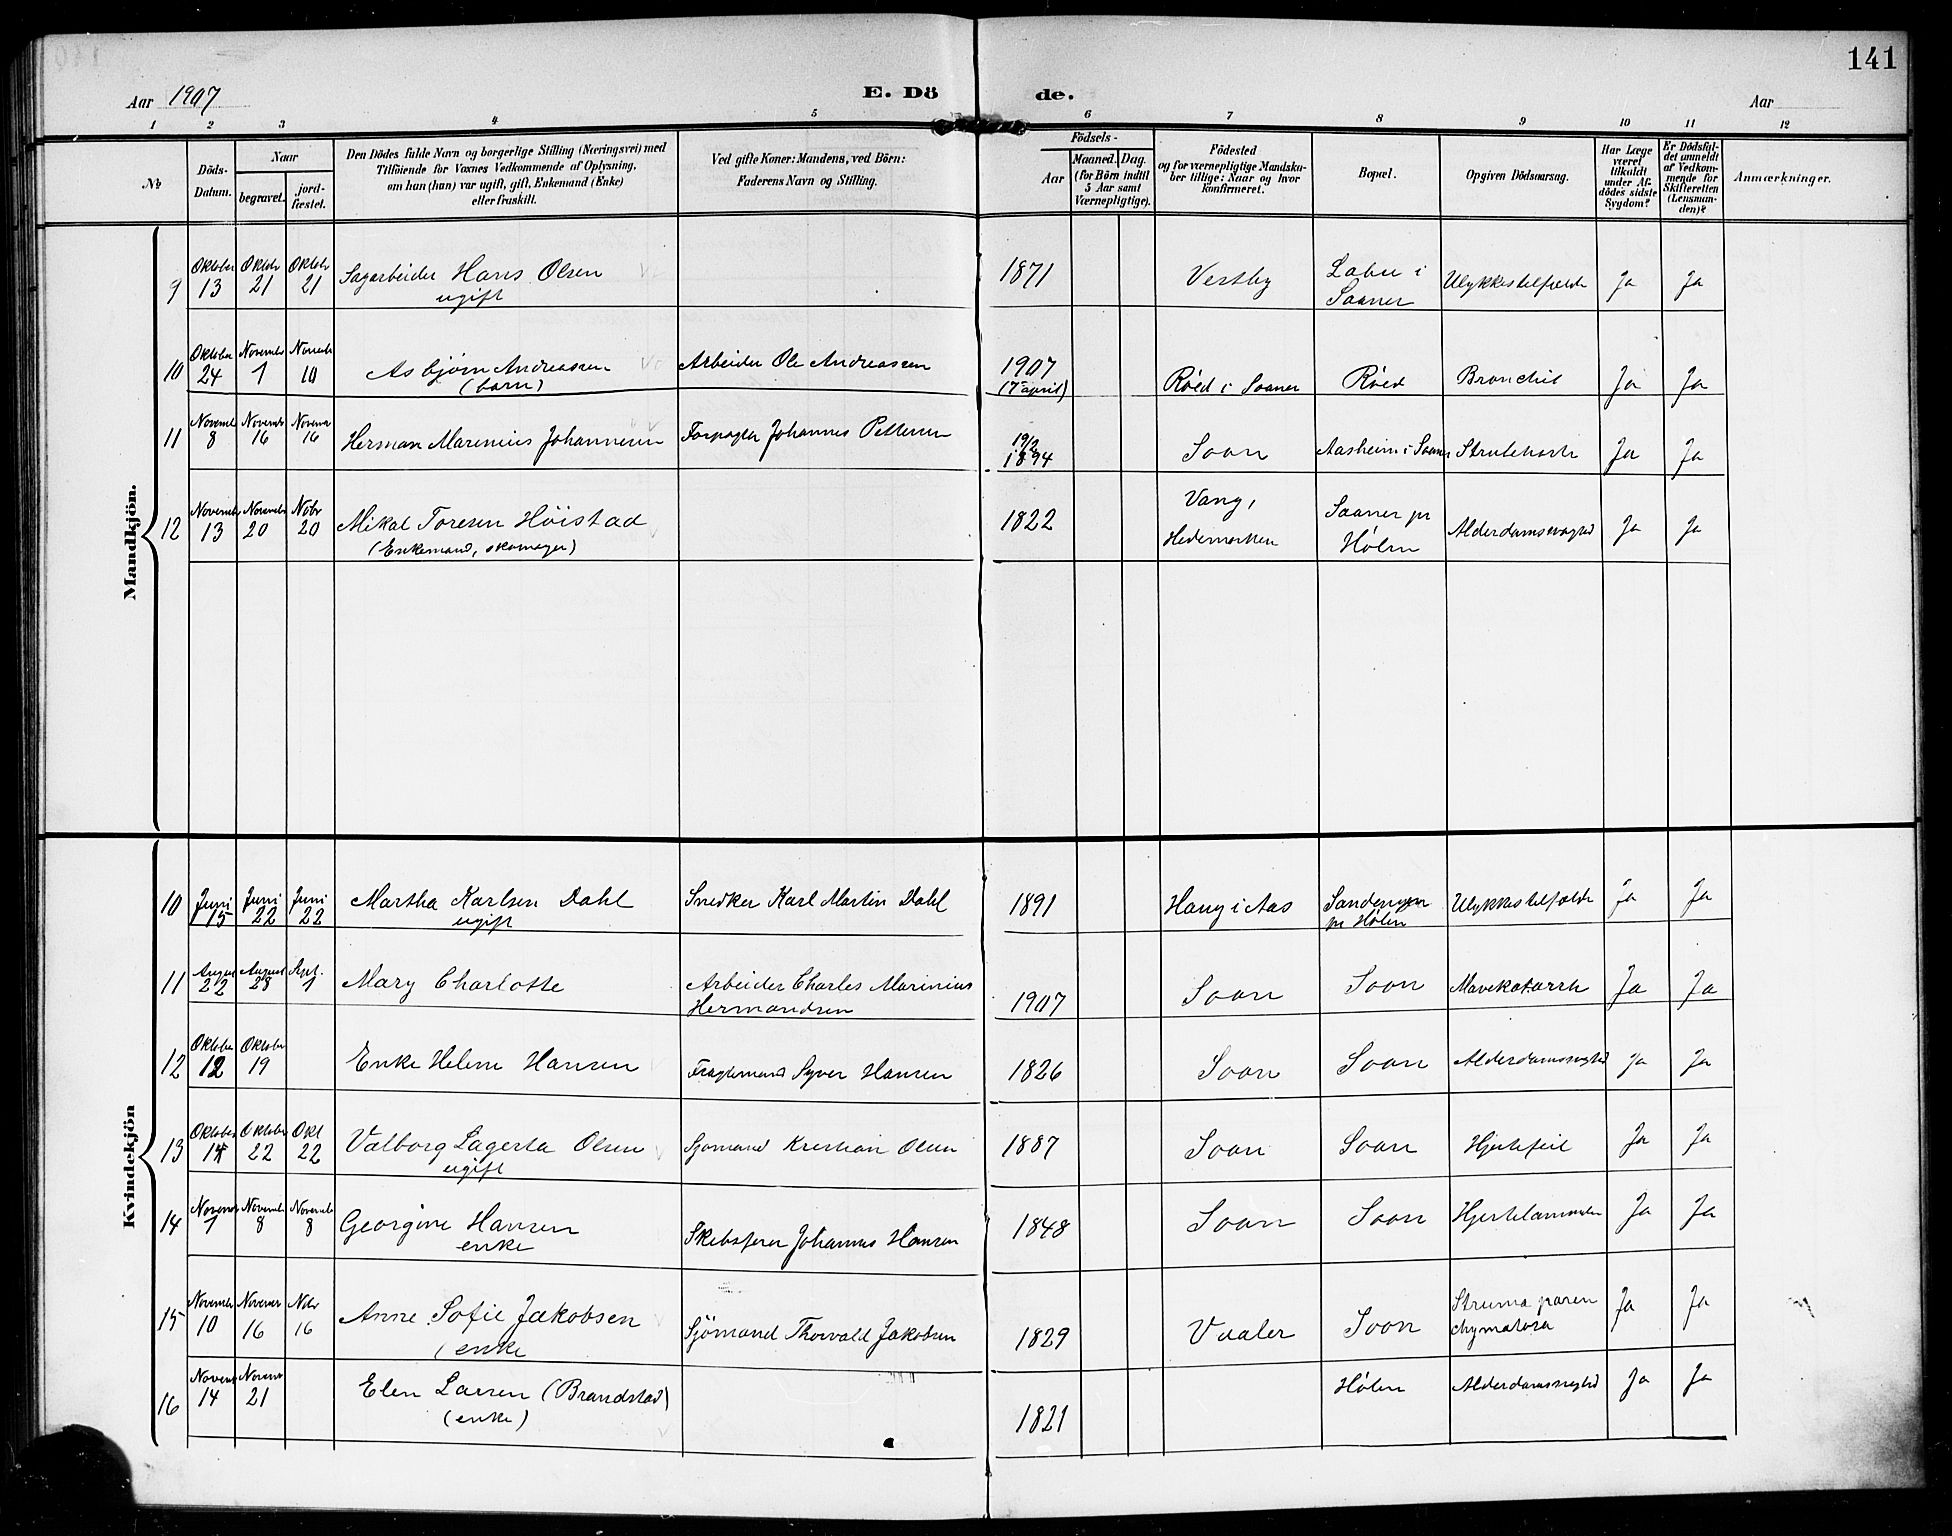 141
Aar 1907
E. Dö de.
Aar
1 2 3 4 5 6 7 8 9 10 11 12
No
Döds-Datum.
Naar
begravet.
jord-fæstet.
Den Dödes fulde Navn og borgerlige Stilling (Næringsvei) med
Tilföiende for Voxnes Vedkommende af Oplysning,
om han (hun) var ugift, gift, Enkemand (Enke)
eller fraskilt.
Ved gifte Koner: Mandens, ved Börn:
Faderens Navn og Stilling.
Födsels-
Aar
Maaned. Dag.
(for Börn indtil
5 Aar samt
Værnepligtige).
Födested
og for værnepligtige Mandska-
ber tillige: Naar og hvor
konfirmeret.
Bopæl.
Opgiven Dödsaarsag.
Har Læge
været
tilkaldt
under Af-
dödes sidste
Sygdom?
Er Dödsfal-
det anmeldt
af Vedkom-
mende for
Skifteretten
(Lensman-
den)?
Anmærkninger.
Mandkjön.
9 Oktober 13 Oktobr 21 Oktobr 21 Sagarbeider Hans Olsen 1871 Vestby Labu i Saaner Ulykkestilfælde Ja Ja
ugift
10 Oktober 24 November 1 Novemb 10 Asbjörn Andreassen Arbeider Ole Andreassen 1907 Röed i Saaner Röed Bronchit Ja Ja
(barn) (7 april)
11 Novemb 8 Novemb 16 Novemb 16 Herman Marinius Johannesen Forpagter Johannes Pettersen 19/2 1894 Soon Aasheim i Saaner Ja Ja
12 Novembr 13 November 20 Nobr 20 Mikal Toresen Höistad 1822 Vang, Hedemarken Saaner pr Hölen Alderdomssvaghed Ja Ja
(Enkemand, skomager)
Kvindekjön
10 Juni 15 Juni 22 Juni 22 Martha Karlsen Dahl Snedker Karl Martin Dahl 1891 Haug i Aas pr Hölen Ulykkestilfælde Ja Ja
ugift
11 August 22 August 28 Sept. 1 Mary Charlotte Arbeider Charles Marinius Hermandsen 1907 Soon Soon Mavekatarrh Ja Ja
12 Oktober 12 Oktober 19 Enke Helene Hansen Fragtemand Syver Hansen 1826 Soon Soon Alderdomssvaghed Ja Ja
13 Oktober 14 Oktober 22 Okt 22 Valborg Lagerta Olsen Sjømand Kristian Olsen 1887 Soon Soon Hjertefeil Ja Ja
ugift
14 Novembr 1 Novembr 8 Novembr 8 Georgine Hansen Skibsfører Johannes Hansen 1848 Soon Soon Hjertelammelse Ja Ja
enke
15 Novembr 10 November 16 Nobr 16 Anne Sofie Jakobsen Sjömand Thorvald Jakobsen 1829 Vaaler Soon Struma paren chymatosa Ja Ja
(enke
16 Novemb 14 Novemb 21 Elen Larsen (Brandstad) 1821 Hölen Alderdomssvaghed Ja Ja
(enke)